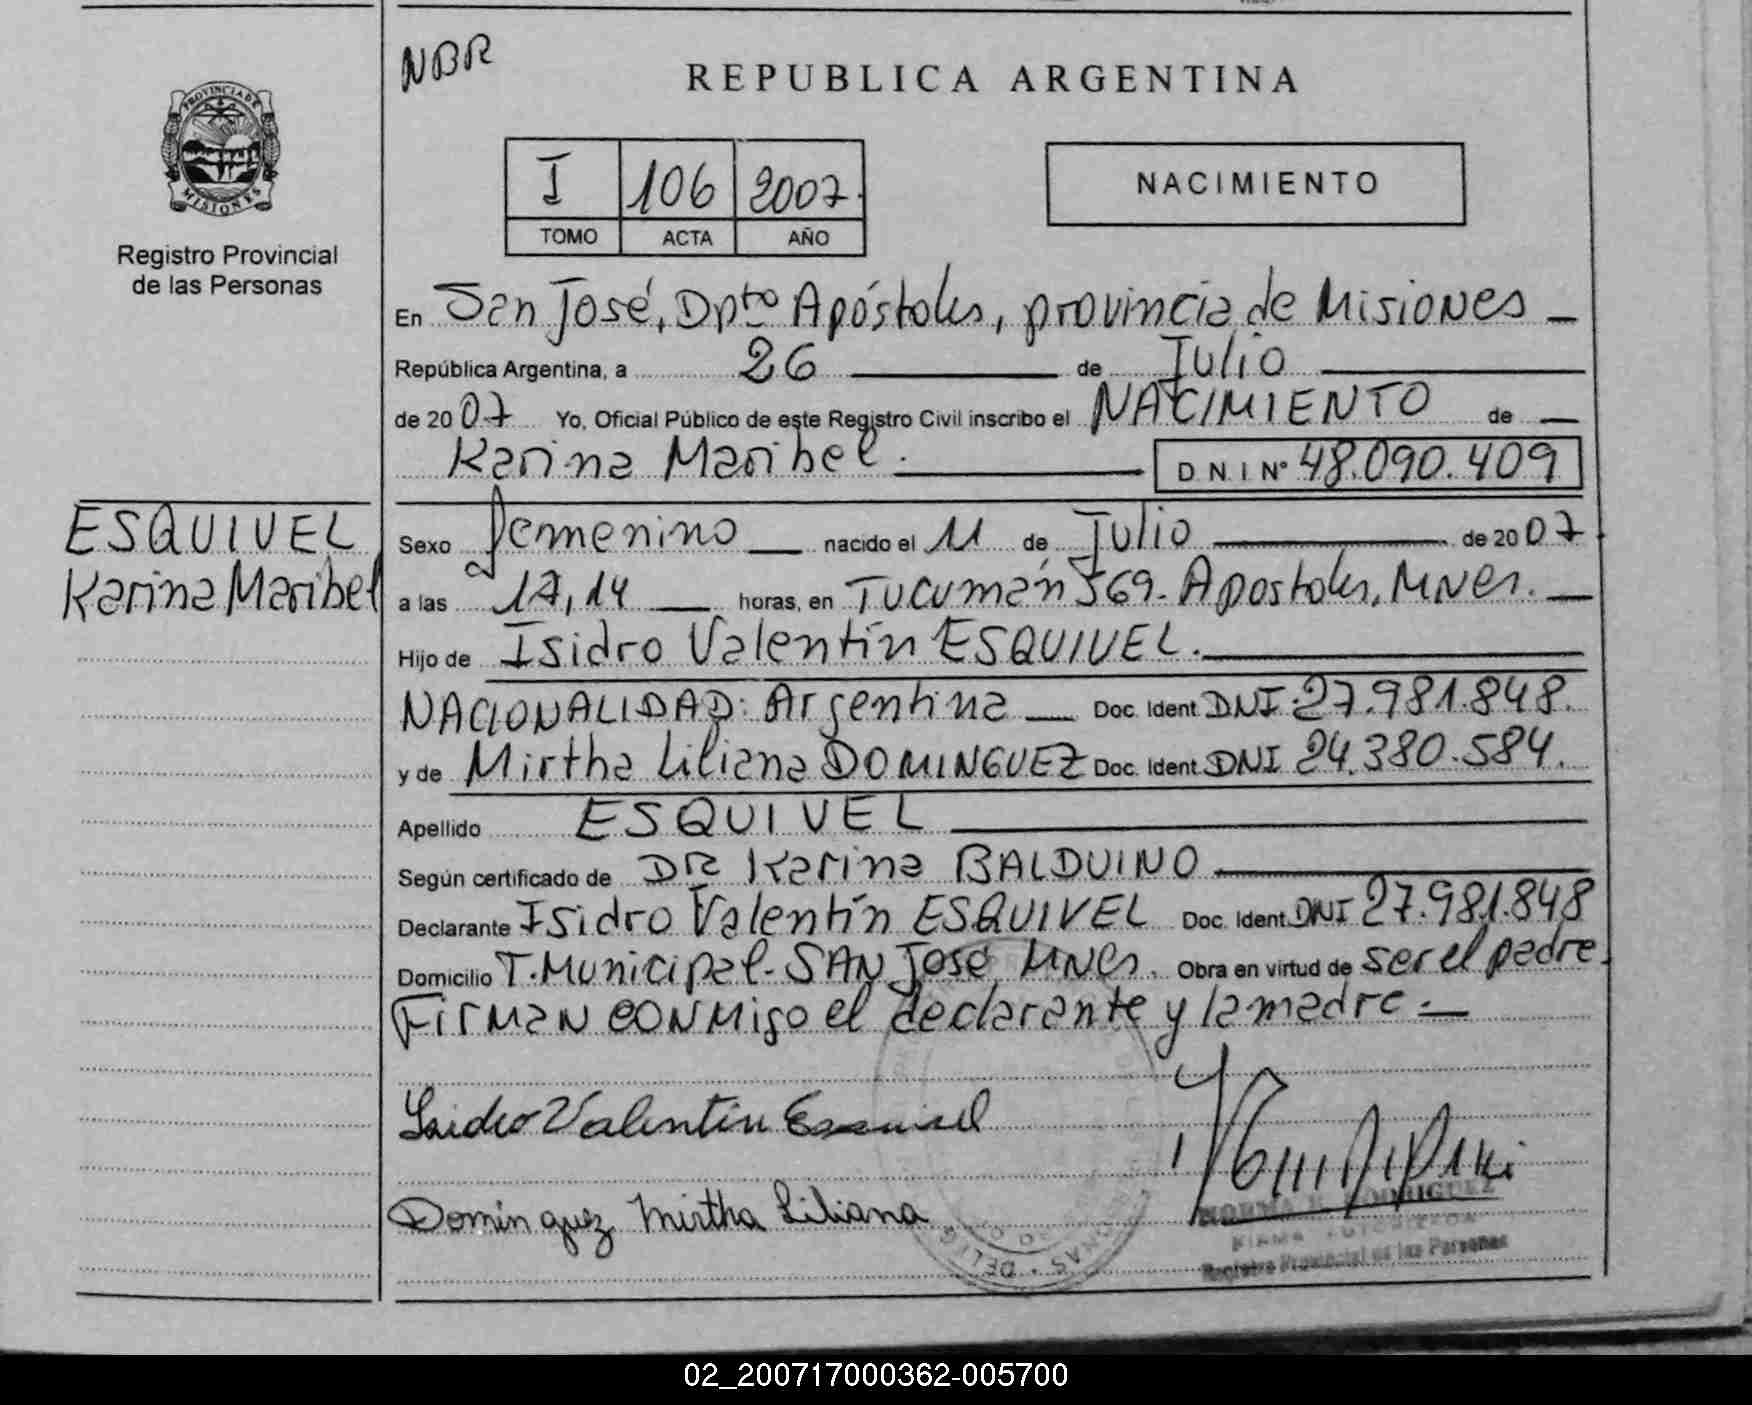 NBR
REPUBLICA ARGENTINA
PROVINCIA DE
MISIONES
Registro Provincial
de las Personas
I 106 2007.
TOMO ACTA AÑO
NACIMIENTO
En San José, Dpto Apóstoles, provincia de Misiones
República Argentina, a 26 de Julio
de 2007 Yo, Oficial Público de este Registro Civil inscribo el NACIMIENTO de
Karina Maribel. D N I Nº 48.090.409
ESQUIVEL
Karina Maribel
Sexo femenino nacido el 11 de Julio de 2007
a las 17,14 horas, en Tucumán 569. Apostoles, MNes.
Hijo de Isidro Valentín ESQUIVEL.
NACIONALIDAD: Argentina Doc. Ident. DNI 27.981.848.
y de Mirtha Liliana DOMINGUEZ Doc. Ident. DNI 24.380.584.
Apellido ESQUIVEL
Según certificado de Dra Karina BALDUINO
Declarante Isidro Valentín ESQUIVEL Doc. Ident. DNI 27.981.848
Domicilio T. Municipal - SAN José MNes. Obra en virtud de ser el padre.
Firman conmigo el declarante y la madre.
Isidro Valentín Esquivel
Dominguez Mirtha Liliana
NORMA B. RODRIGUEZ
FIRMA AUTORIZADA
Registro Provincial de las Personas
02_200717000362-005700